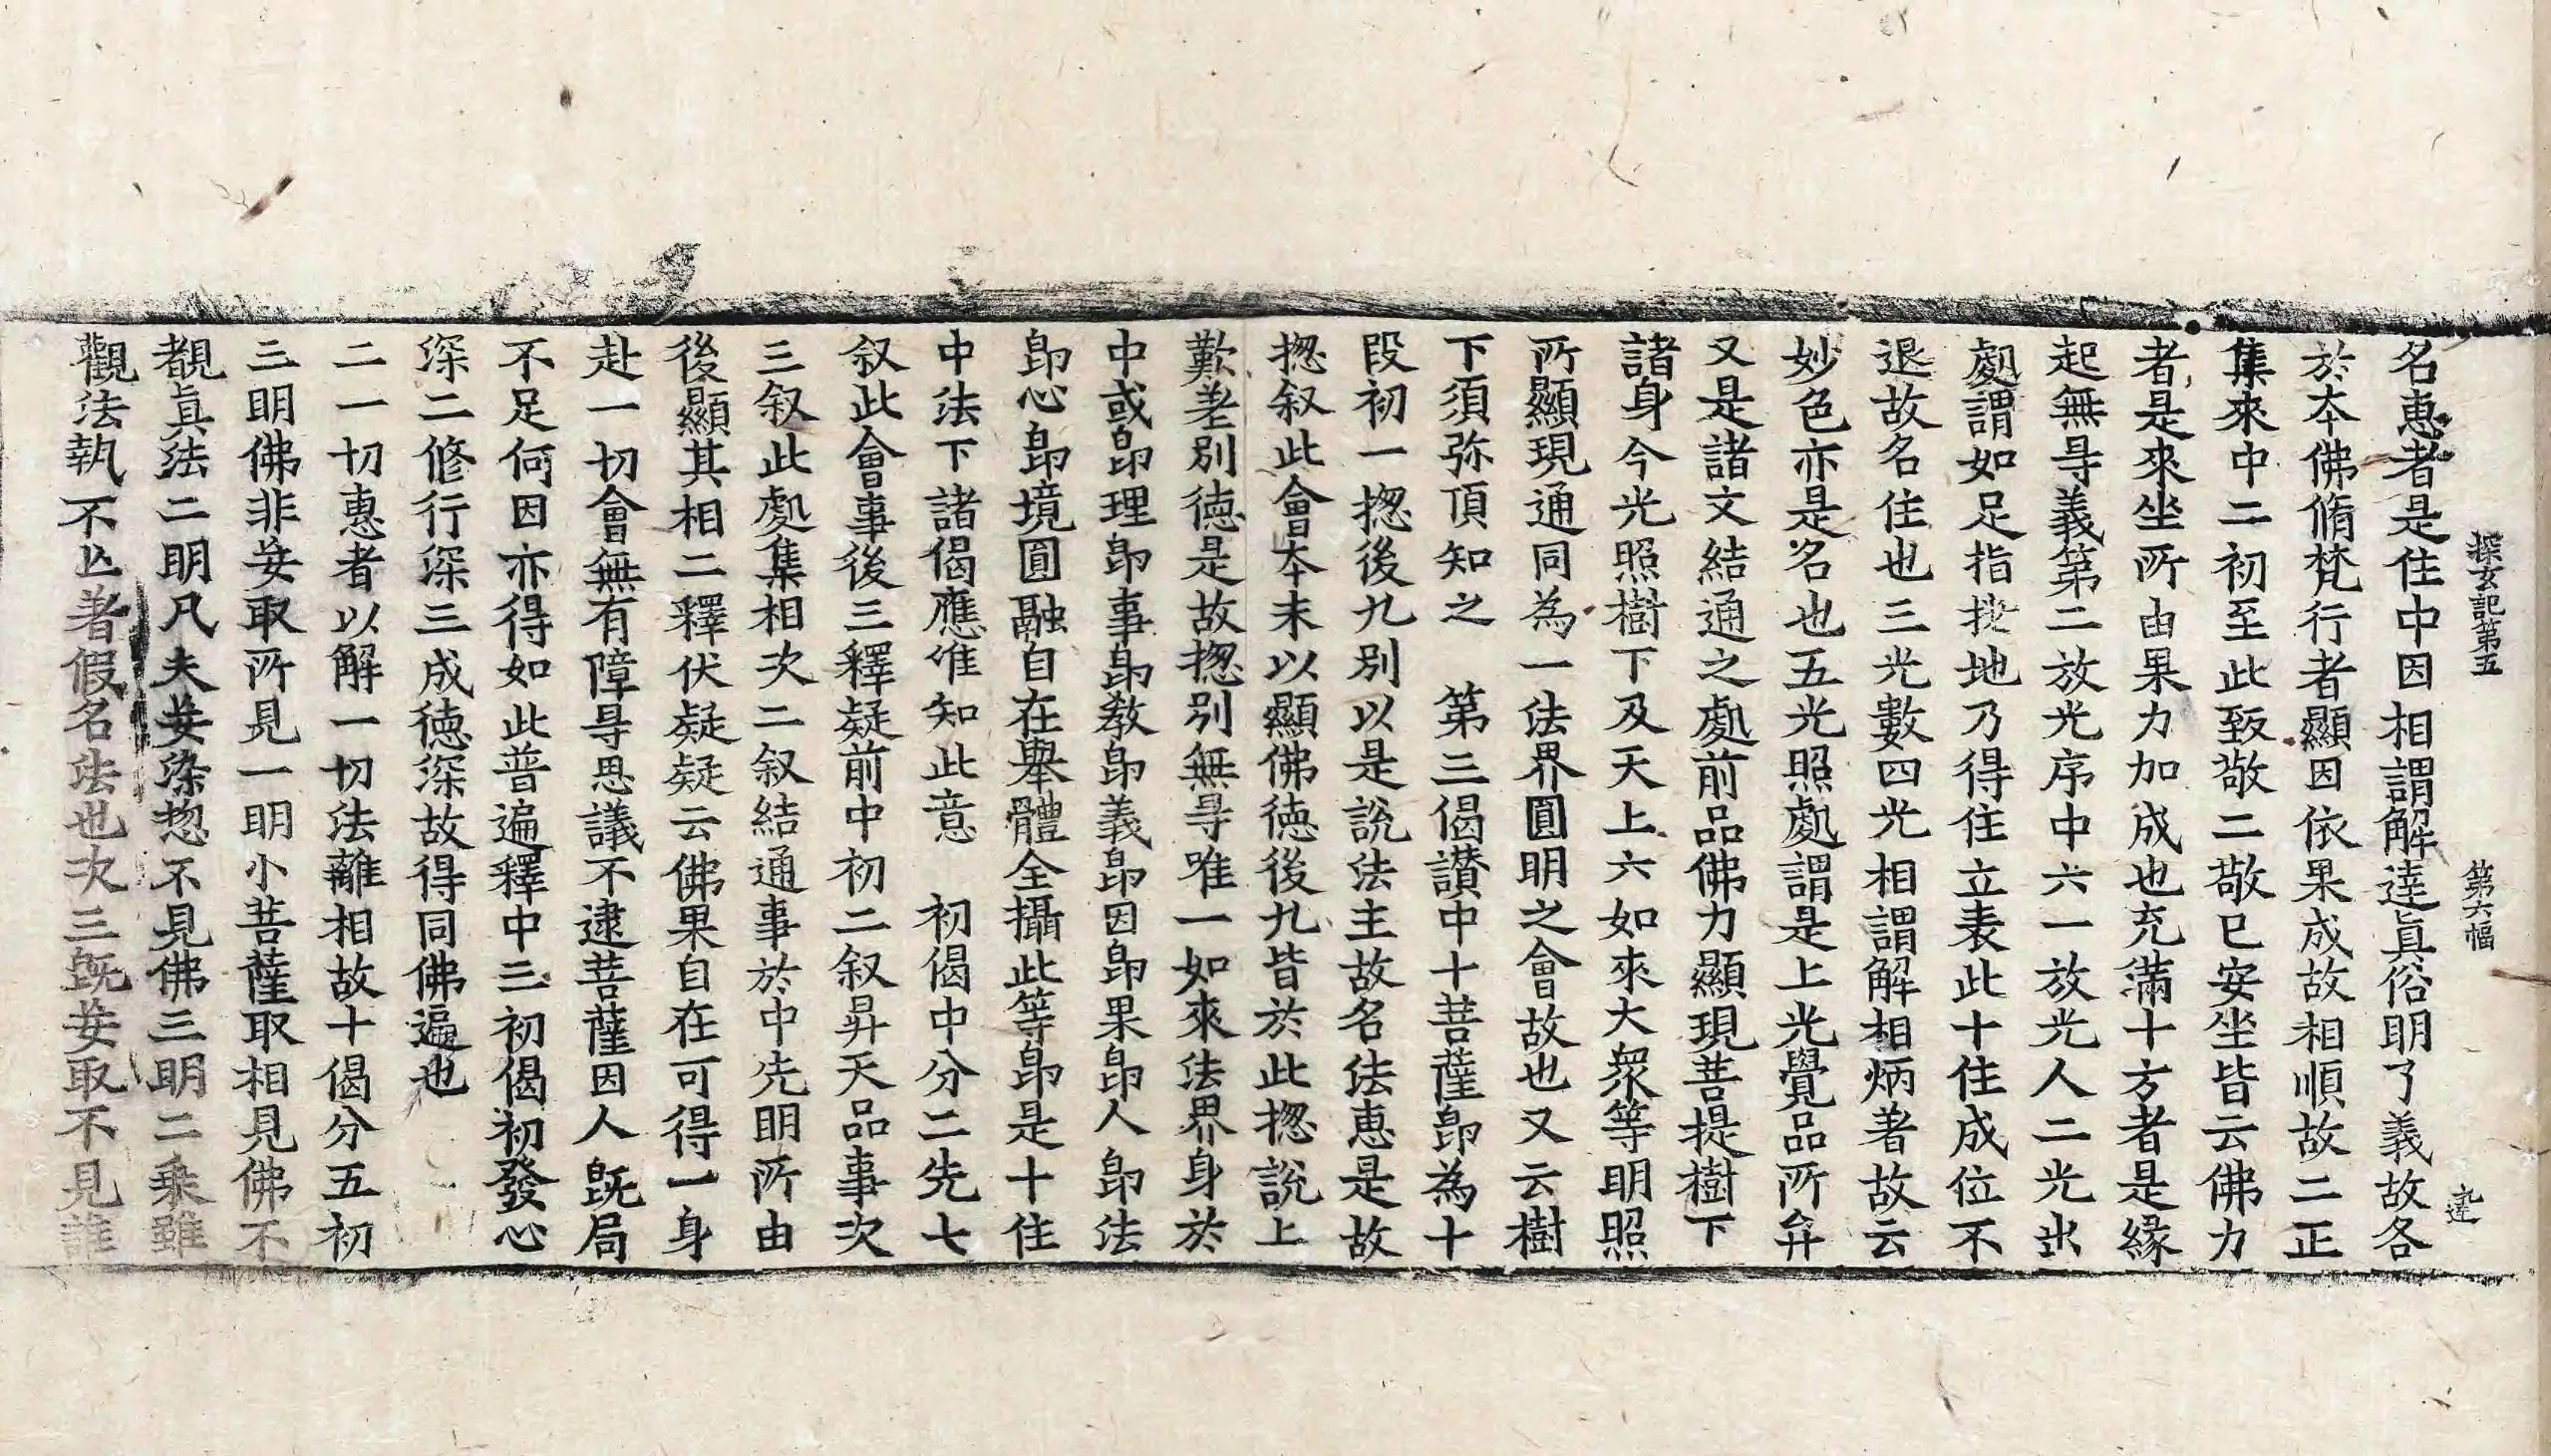 探玄記第五 第六幅
名惠者是住中因相謂解達真俗明了義故各
於本佛脩梵行者顯因依果成故相順故二正
集來中二初至此致敬二敬已安坐皆云佛力
者是來坐所由果力加成也充滿十方者是緣
起無㝵義第二放光序中六一放光人二光出
處謂如足指按地乃得住立表此十住成位不
退故名住也三光數四光相謂解相炳著故云
妙色亦是名也五光照處謂是上光覺品所弁
又是諸文結通之處前品佛力顯現菩提樹下
諸身今光照樹下及天上六如來大衆等明照
所顯現通同為一法界圓明之會故也又云樹
下須弥頂知之 第三偈讃中十菩薩即為十
段初一揔後九別以是說法主故名法惠是故
揔叙此會本末以顯佛徳後九皆於此揔說上
歎差別徳是故揔別無㝵唯一如來法界身於
中或即理即事即教即義即因即果即人即法
即心即境圓融自在舉體全攝此等即是十住
中法下諸偈應准知此意 初偈中分二先七
叙此會事後三釋疑前中初二叙昇天品事次
三叙此處集相次二叙結通事於中先明所由
後顯其相二釋伏疑疑云佛果自在可得一身
赴一切會無有障㝵思議不逮菩薩因人既局
不足何因亦得如此普遍釋中三初偈初發心
深二修行深三成徳深故得同佛遍也
二一切惠者以解一切法離相故十偈分五初
三明佛非妄取所見一明小菩薩取相見佛不
覩真法二明凡夫妄染惣不見佛三明二乗雖
觀法執不亡著假名法也次三既妄取不見誰